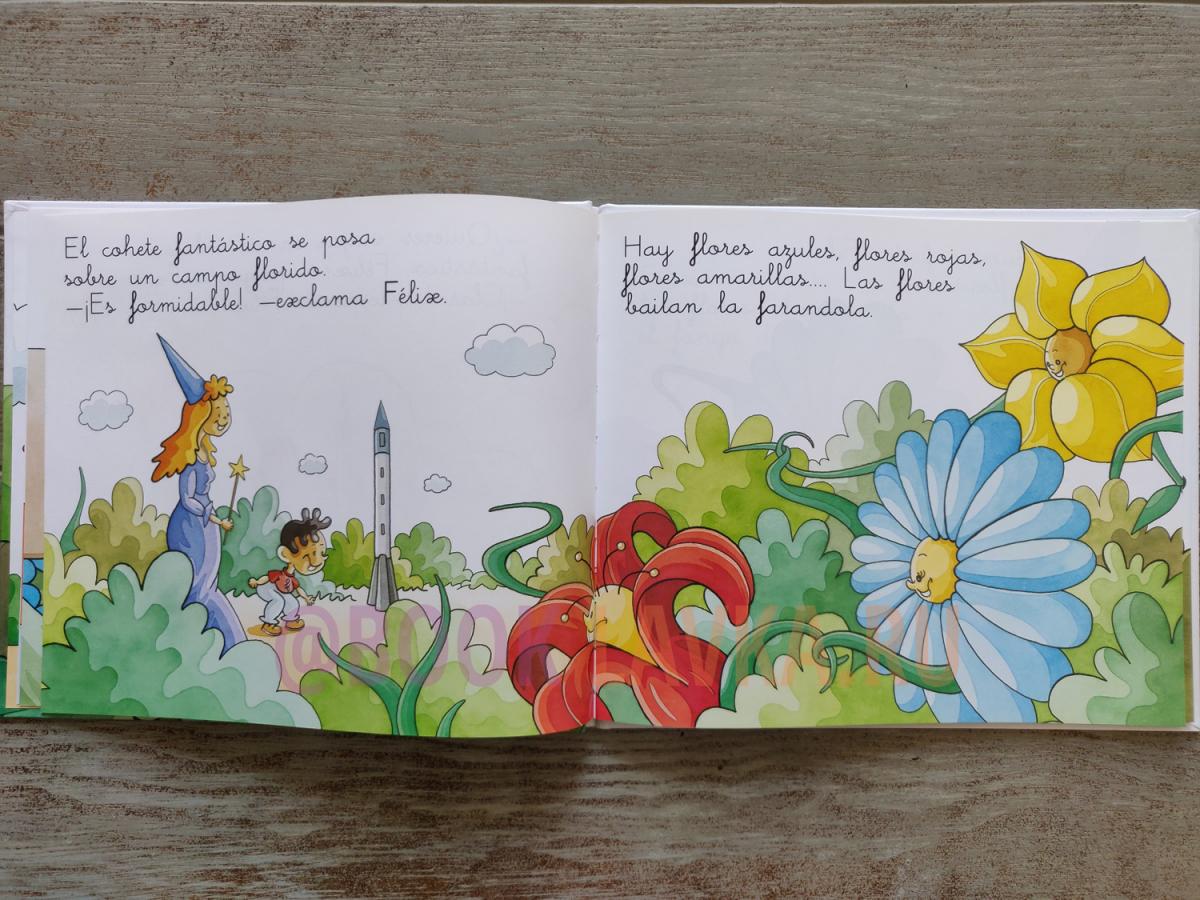 El cohete fantástico se posa
sobre un campo florido.
—¡Es formidable! —exclama Félix.
Hay flores azules, flores rojas,
flores amarillas.... Las flores
bailan la farandola.
@BOOKLAVKA.RU